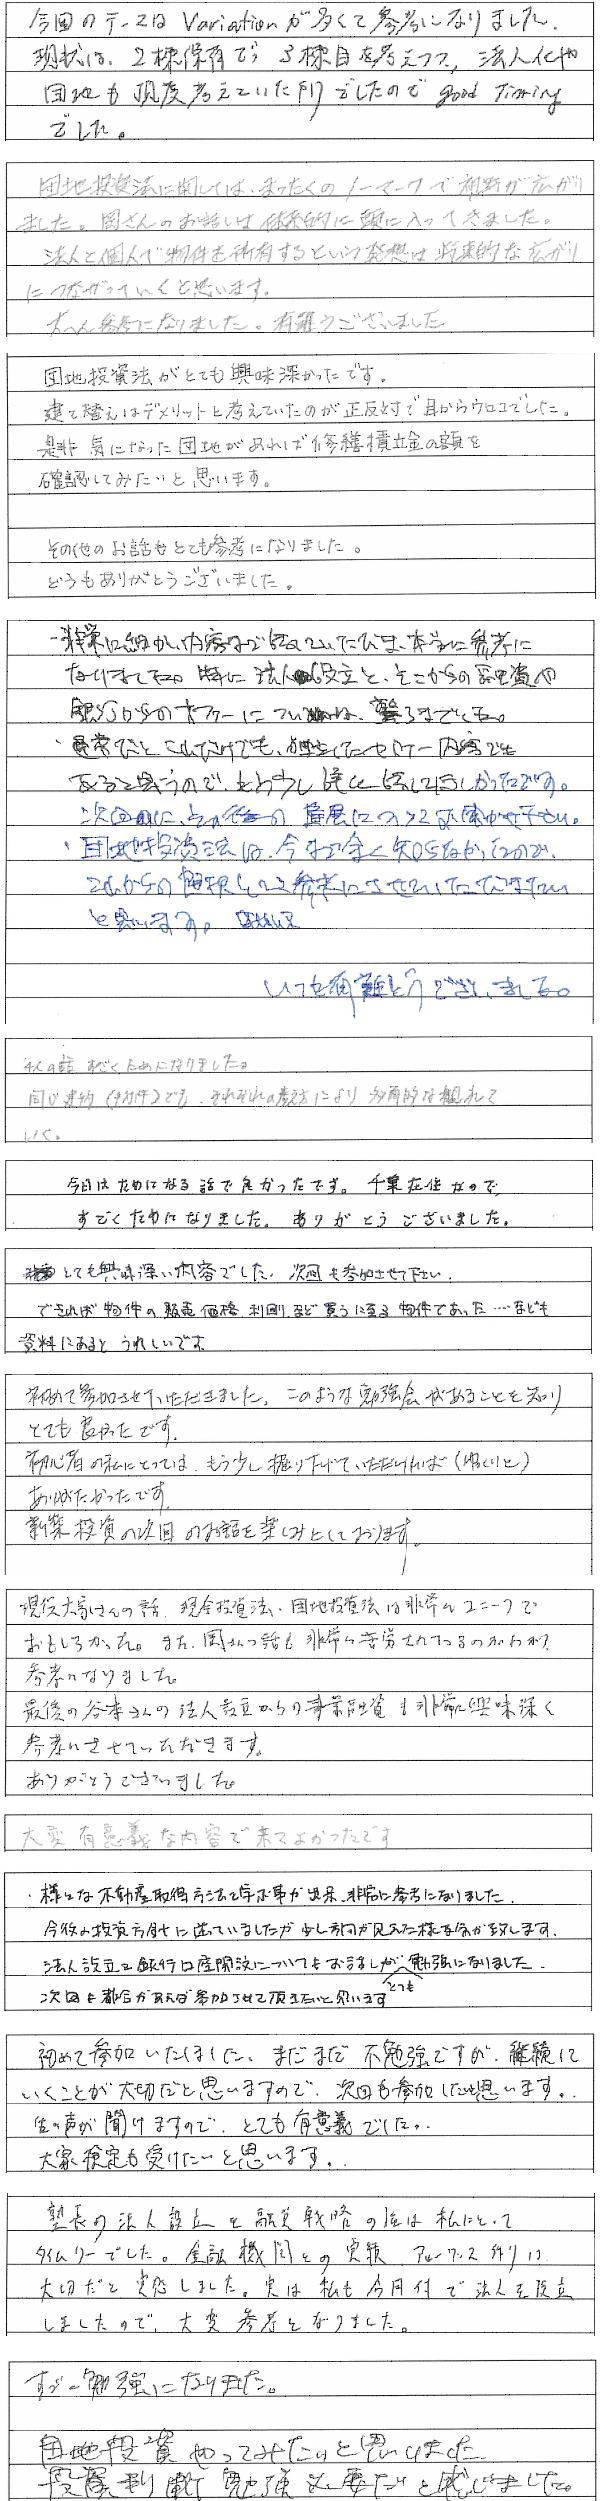 今回のテーマは Variation が多くて参考になりました。
現状は、2棟保有で、3棟目を考えつつ、法人化や
団地も丁度考えていた所でしたので good Timing
でした。
団地投資法に関しては、まったくのノーマークで視野が広がり
ました。岡さんのお話しは体系的に頭に入ってきました。
法人と個人で物件を所有するという発想は将来的な広がり
につながっていくと思います。
大へん参考になりました。有難うございました
団地投資法がとても興味深かったです。
建て替えはデメリットと考えていたのが正反対で目からウロコでした。
是非気になった団地があれば修繕積立金の額を
確認してみたいと思います。
その他のお話もとても参考になりました。
どうもありがとうございました。
・非常に細かい内容まで伝えていただき、本当に参考に
なりました。特に法人設立と、そこからの融資や
銀行からのオファーについては、驚くまでした。
・通常だとこれだけでも、独立したセミナー内容でも
あると思うので、もう少し詳しく話してほしかったです。
次回に、その後の進展について、お聞かせ下さい。
・団地投資法は、今まで全く知らなかったので、
これからの選択として参考にさせていただきたい
と思います。
いつも有難とうございました。
私の話 すごくためになりました。
同じ建物(物件)でも、それぞれの考え方により多角的な
いく。
今日はためになる話で良かったです。千葉在住なので、
すごくためになりました。ありがとうございました。
とても興味深い内容でした。次回も参加させて下さい。
できれば物件の販売価格、利回りなど買うに至る物件であった…なども
資料にあるとうれしいです
初めて参加させていただきました。このような勉強会があることを知り
とても良かったです。
初心者の私にとっては、もう少し掘り下げていただければ(ゆっくりと)
ありがたかったです。
新築投資の次回のお話を楽しみにしております。
現役大家さんの話、現金投資法・団地投資法は非常にユニークで
おもしろかった。また、岡さんの話も非常に苦労されてるのがわかり
参考になりました。
最後の谷本さんの法人設立からの事業融資も非常に興味深く
参考にさせていただきます。
ありがとうございました。
大変有意義な内容で来てよかったです
・様々な不動産取得方法を学ぶ事が出来、非常に参考になりました。
今後の投資方針に迷っていましたが少し方向が見えた様な気が致します。
法人設立と銀行口座開設についても とても 勉強になりました。
次回も都合があえば参加させて頂きたいと思います
初めて参加いたしました。まだまだ不勉強ですが、継続して
いくことが大切だと思いますので、次回も参加したいと思います。
生の声が聞けますので、とても有意義でした。
大家検定も受けたいと思います。
塾長の法人設立と融資戦略の話は私にとって
タイムリーでした。金融機関との実績 アローワンス作りは
大切だと実感しました。実は私も今月付で法人を設立
しましたので、大変参考となりました。
すごーく勉強になりました。
団地投資やってみたいと思いました
投資判断 勉強必要だと感じました。